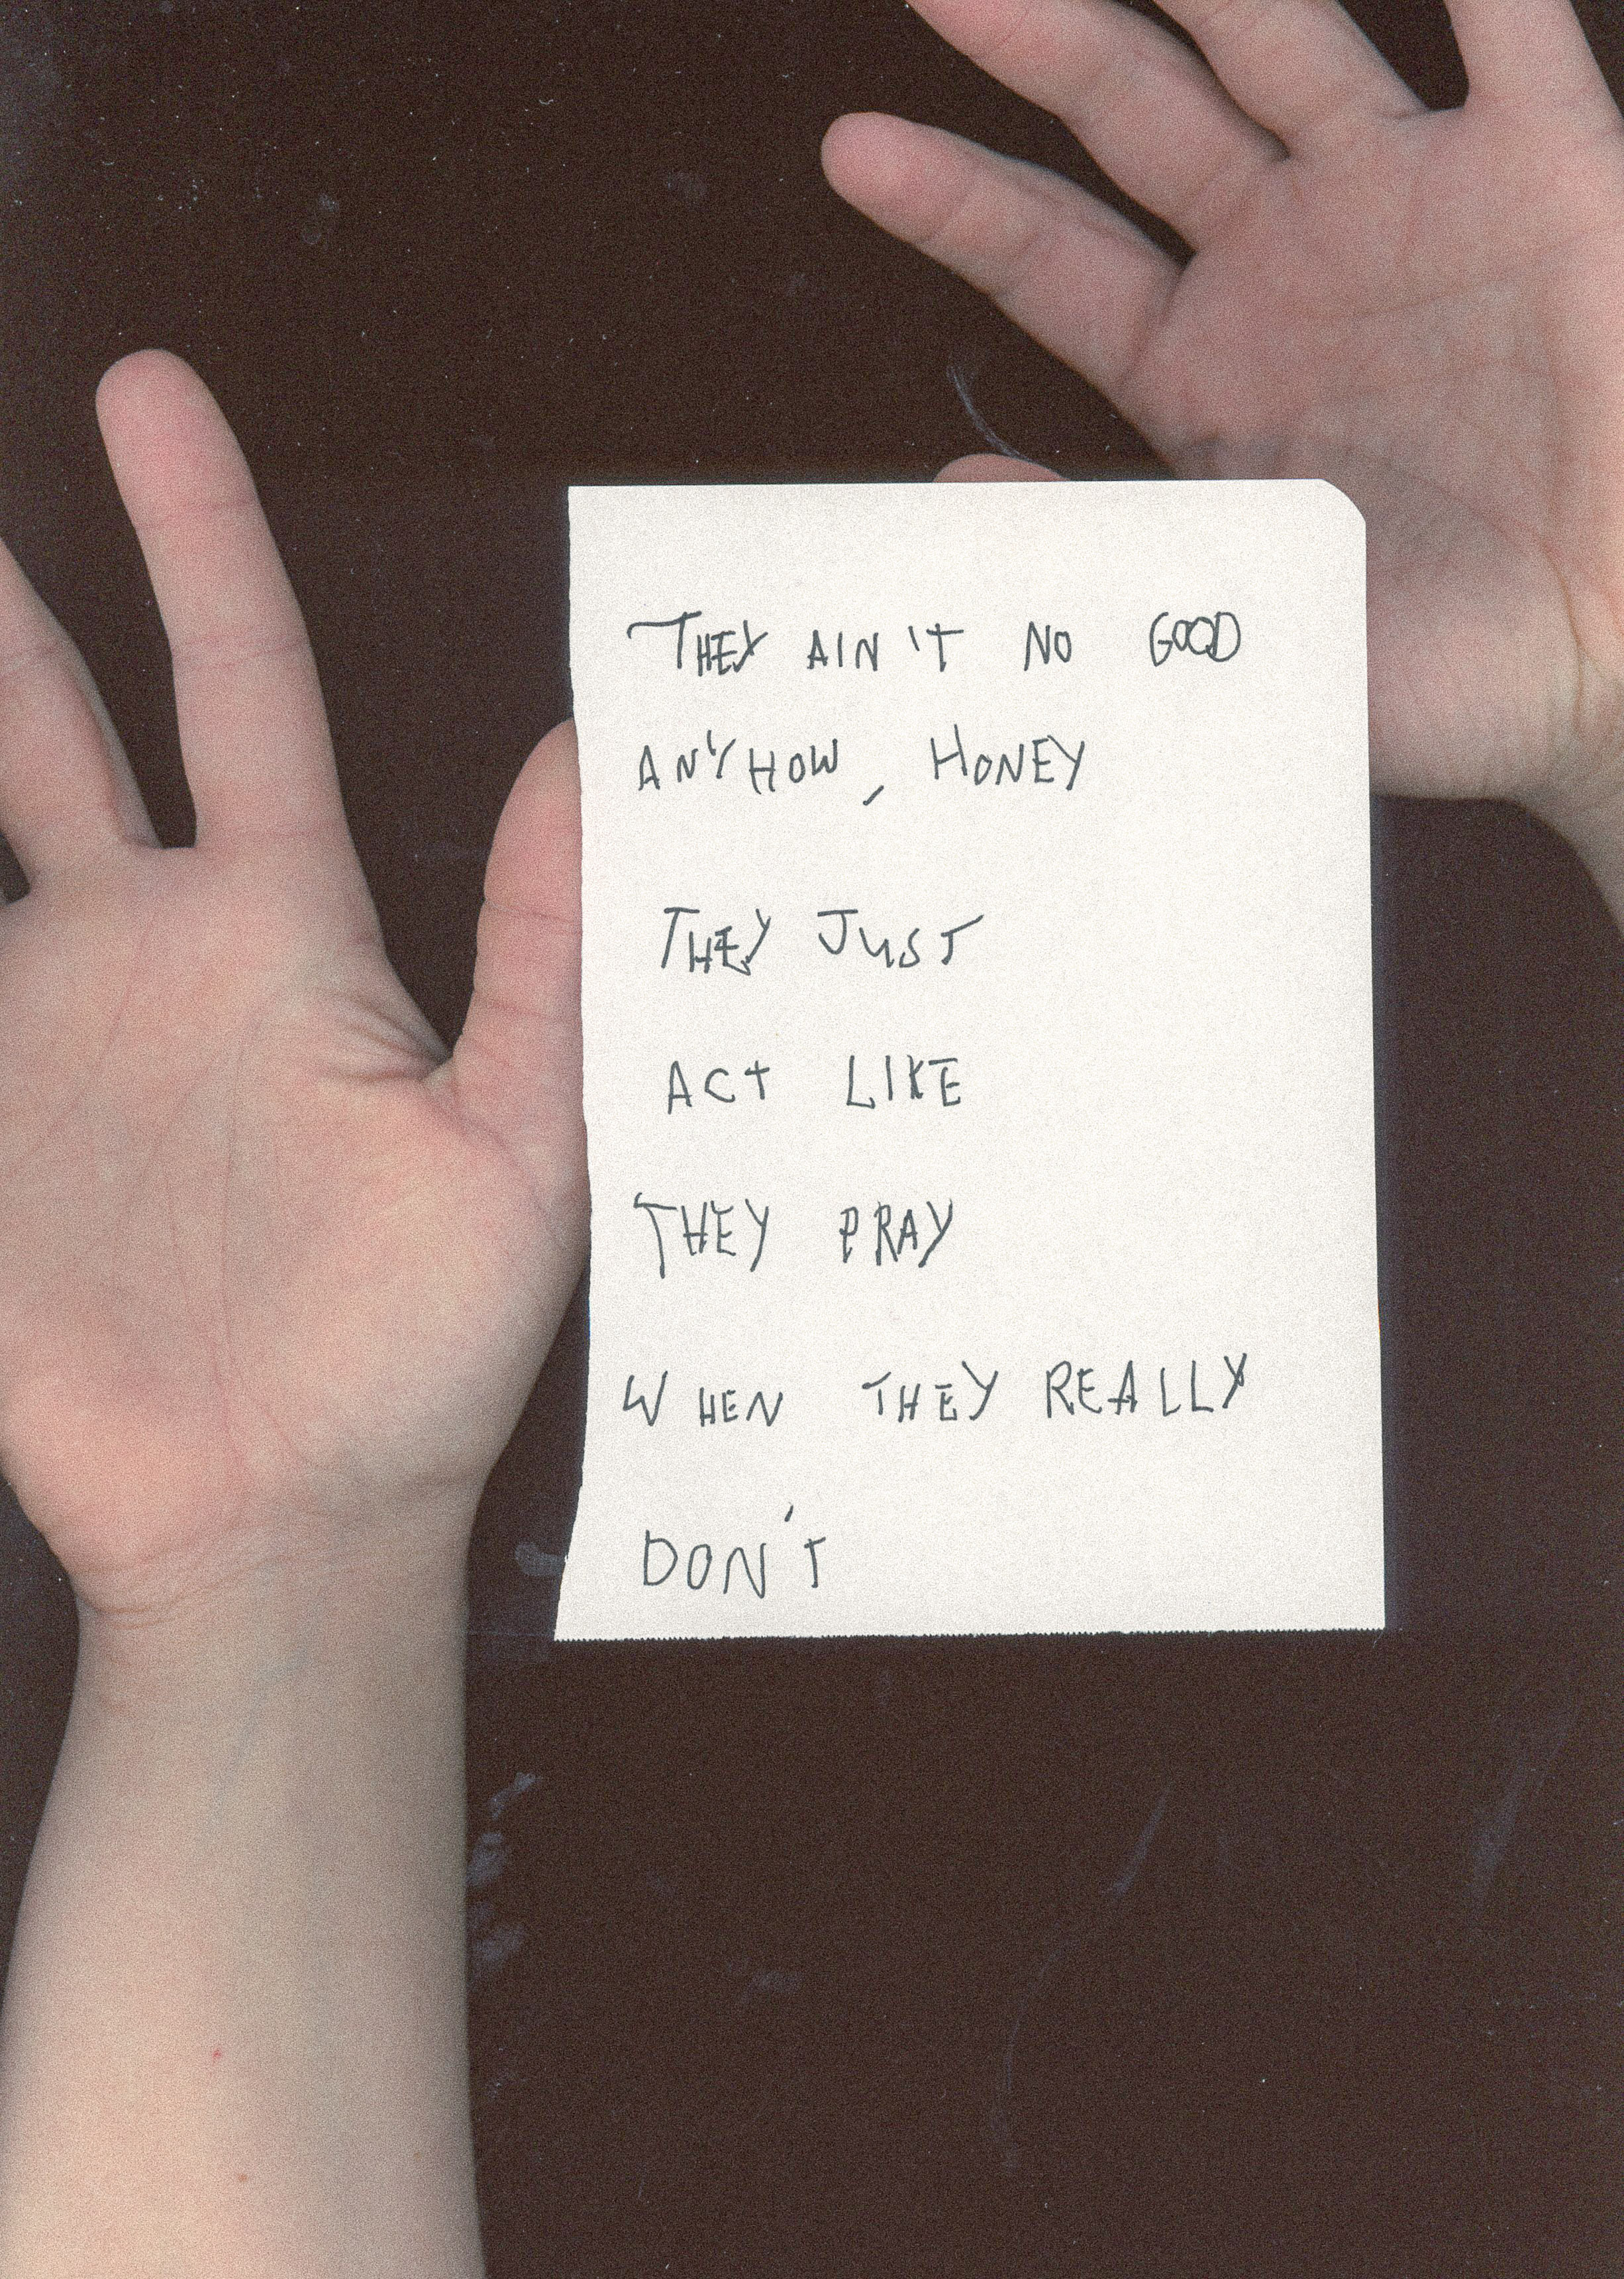 THEY AIN'T NO GOOD
ANYHOW, HONEY
THEY JUST
ACT LIKE
THEY PRAY
WHEN THEY REALLY
DON'T